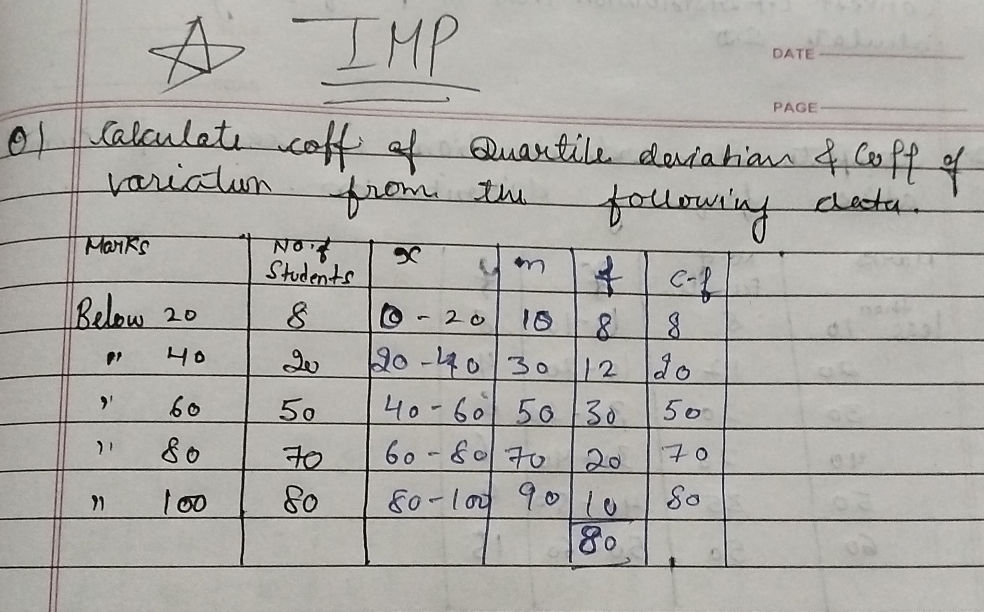 IMP
DATE
PAGE
Q1 Calculate coff of Quartile deviation & Coff of
variation from the following data.
Marks No. of Students x m f c-f
Below 20 8 0 - 20 10 8 8
" 40 20 20 - 40 30 12 20
" 60 50 40 - 60 50 30 50
" 80 70 60 - 80 70 20 70
" 100 80 80 - 100 90 10 80
80